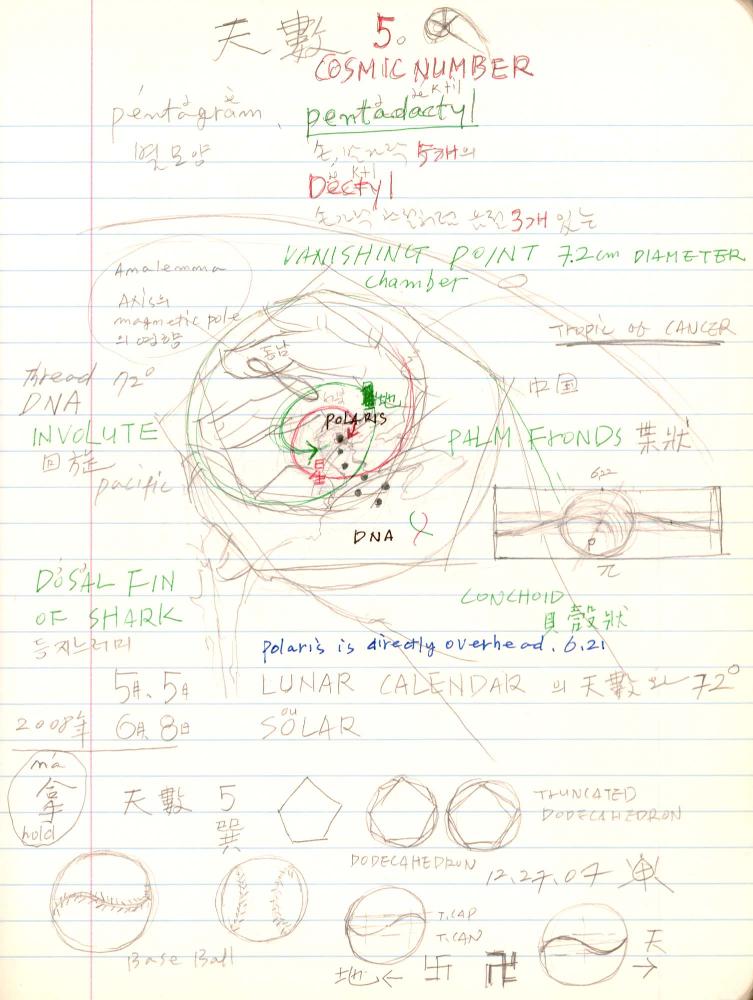 天 數 5.
COSMIC NUMBER
pentagram, pentadactyl
별모양 손,발가락 5개의
Dactyl
손가락
3개 있는
VANISHING POINT 7.2cm DIAMETER
chamber
Analemma
Axis의
magnetic pole
의 영향
Tropic of CANCER
동남
Thread 72°
DNA
中国
地
POLARIS
INVOLUTE
回旋
PALM FRONDS 葉狀
星
pacific
622
P
DNA
π
DOSAL FIN
OF SHARK
등지느러미
CONCHOID
貝殼狀
polaris is directly overhead. 6.21
5月. 5日 LUNAR CALENDAR 의 天數와 72°
2008年 6月 8日 SOLAR
ná
拿
hold
天 數 5
巽
TRUNCATED
DODECAHEDRON
DODECAHEDRON
12.27.07
T.CAP
T.CAN
Base Ball
地 ← 卐 卍
天
→